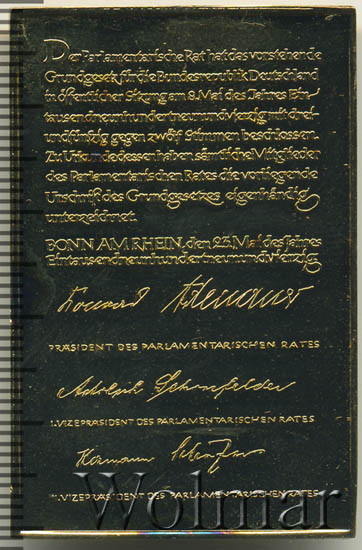 Der Parlamentarische Rat hat das vorstehende
Grundgesetz für die Bundesrepublik Deutschland
in öffentlicher Sitzung am 8. Mai des Jahres Ein-
tausendneunhundertneunundvierzig mit drei-
undfünfzig gegen zwölf Stimmen beschlossen.
Zu Urkunde dessen haben sämtliche Mitglieder
des Parlamentarischen Rates die vorliegende
Urschrift des Grundgesetzes eigenhändig
unterzeichnet.
BONN AM RHEIN, den 23. Mai des Jahres
Eintausendneunhundertneunundvierzig
Konrad Adenauer
PRÄSIDENT DES PARLAMENTARISCHEN RATES
Adolph Schönfelder
I. VIZEPRÄSIDENT DES PARLAMENTARISCHEN RATES
Hermann Schäfer
II. VIZEPRÄSIDENT DES PARLAMENTARISCHEN RATES
Wolmar